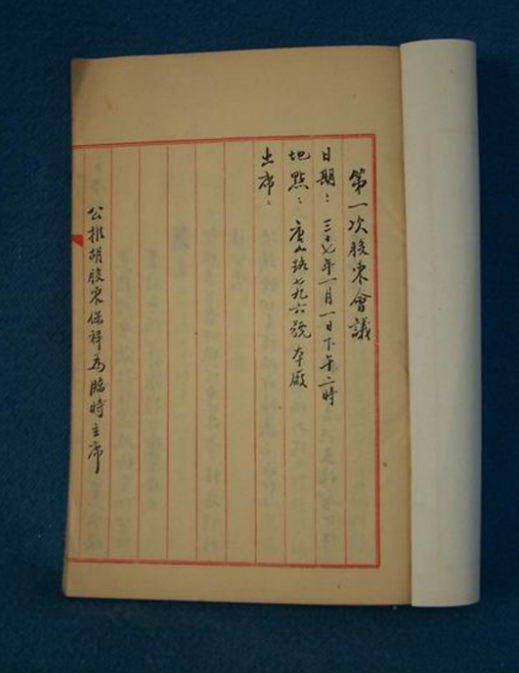 第一次股東會議
日期：三十七年一月一日下午二時
地點：唐山路七九六號本廠
出席：
公推胡股東保祥為臨時主席